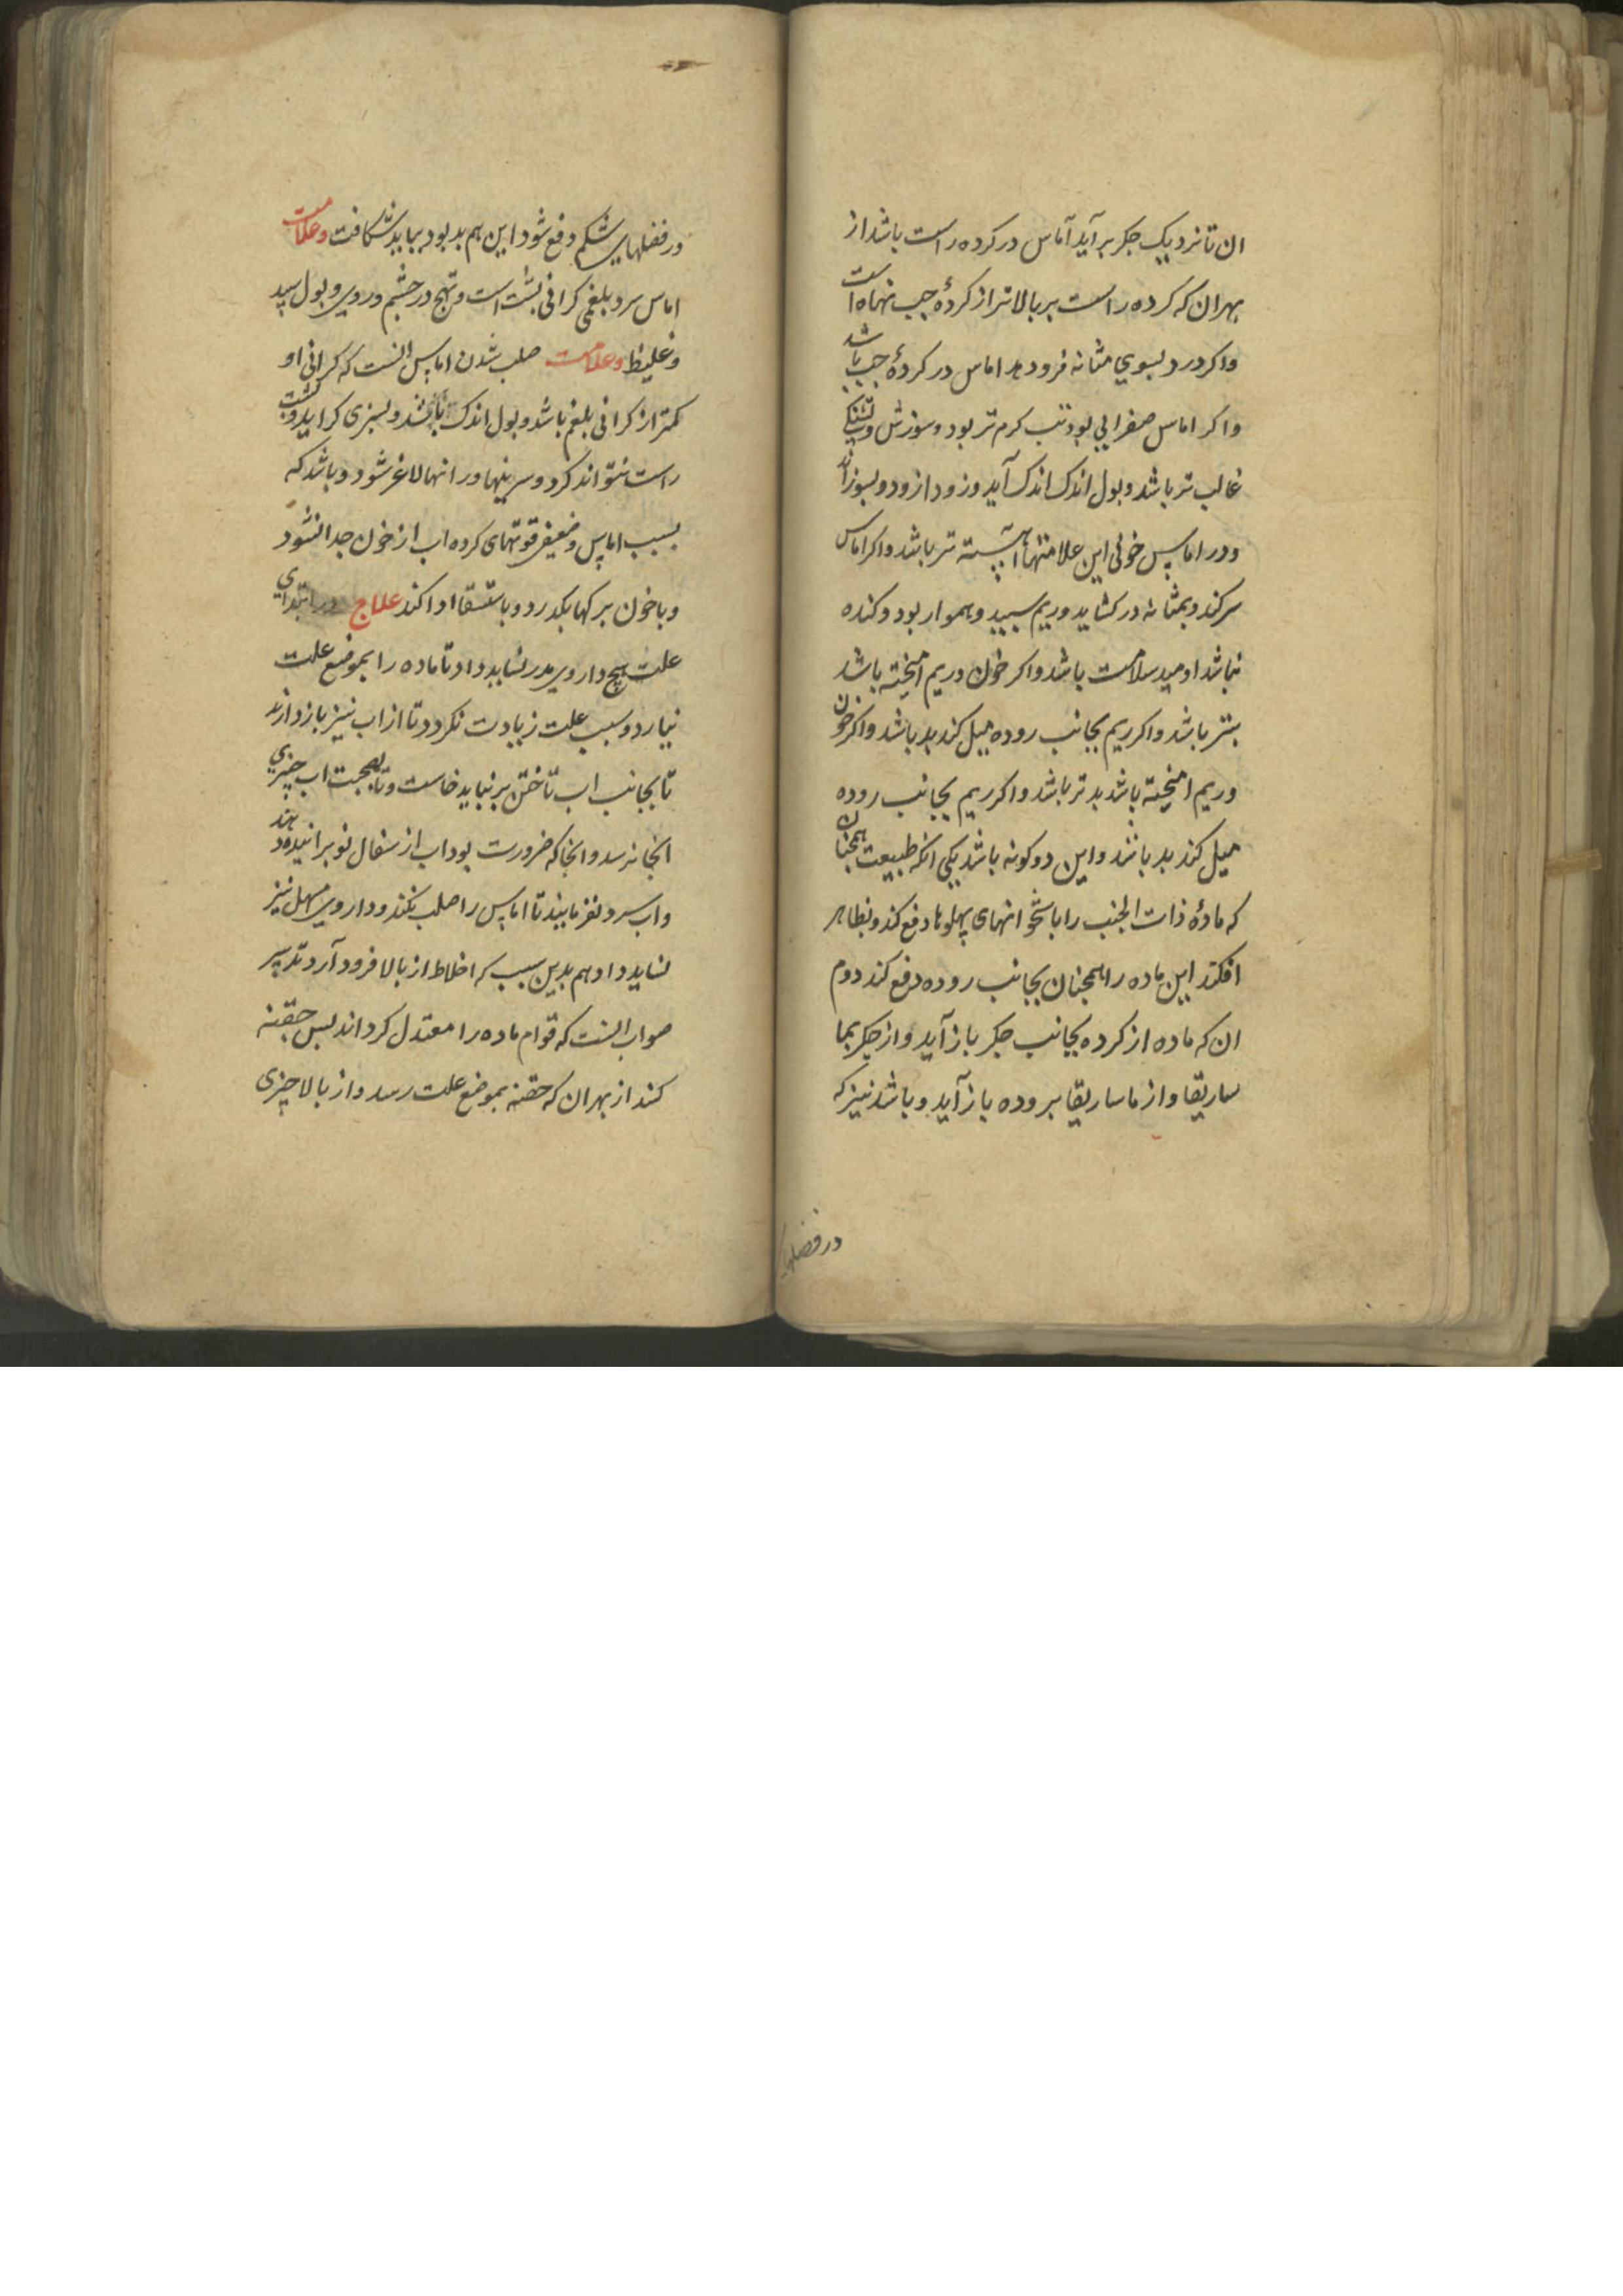 ان تا نزدیک جکر برآید آماس در کرده راست باشد از
بهر ان که کرده راست بر بالاتر از کردهٔ جب نهاده است
واکر درد بسوي مثانه فرود مد اماس در کردهٔ جب باشد
واکر اماس صفرایی بود تب کرم تر بود و سوزش و تشنکی
غالب تر باشد و بول اندک اندک آید و زود از ود و بسوزاند
ودر اماس خونی این علامتها آهسته تر باشد واکر اماس
سر کند و بمثانه در کشاید وریم سپید و هموار بود و کنده
نباشد اومید سلامت باشد واکر خون وریم امیخته باشد
بتر باشد واکر ریم بجانب روده میل کند بد باشد واکر خون
وریم امیخته باشد بدتر باشد واکر ریم بجانب روده
میل کند بد باشد واین دو کونه باشد یکی انکه طبیعت همچنان
که مادهٔ ذات الجنب را باستخوانهای پهلوها دفع کند و بظاهر
افکند این ماده را همچنان بجانب روده دفع کند دوم
ان که ماده از کرده بجانب جکر باز آید واز جکر بما
ساریقا واز ماساریقا بروده باز آید و باشد نیز که
در فضلهای
در فضلهای شکم دفع شود این هم بد بود بباید شکافت وعلامت
اماس سرد بلغمی کرانی پشت است وتهج در چشم وروی وبول سپید
وغلیظ وعلامت صلب شدن اماس انست که کرانی او
کمتر از کرانی بلغم باشد وبول اندک باشد وبسبزی کراید وپشت
راست نتواند کرد وسرینها ورانها لاغر شود وباشد که
بسبب اماس وضعیفی قوتهای کرده اب از خون جدا نشود
وباخون برکها بکدرد وباستسقا ادا کند علاج در ابتدای
علت هیچ داروی مدر نشاید داد تا ماده را بموضع علت
نیارد وسبب علت زیادت نکردد تا از اب نیز باز دارند
تا بجانب اب تاختن برنباید خاست وتا بصحبت اب چیزي
انجا نرسد وانجا که ضرورت بود اب از سفال نو برانیده دهند
واب سرد نفرمایند تا اماس را صلب نکند وداروی مسهل نیز
نشاید داد هم بدین سبب که اخلاط از بالا فرود آرد تدبیر
صواب انست که قوام ماده را معتدل کرداند بس حقنه
کند از بهر ان که حقنه بموضع علت رسد واز بالا چیزی